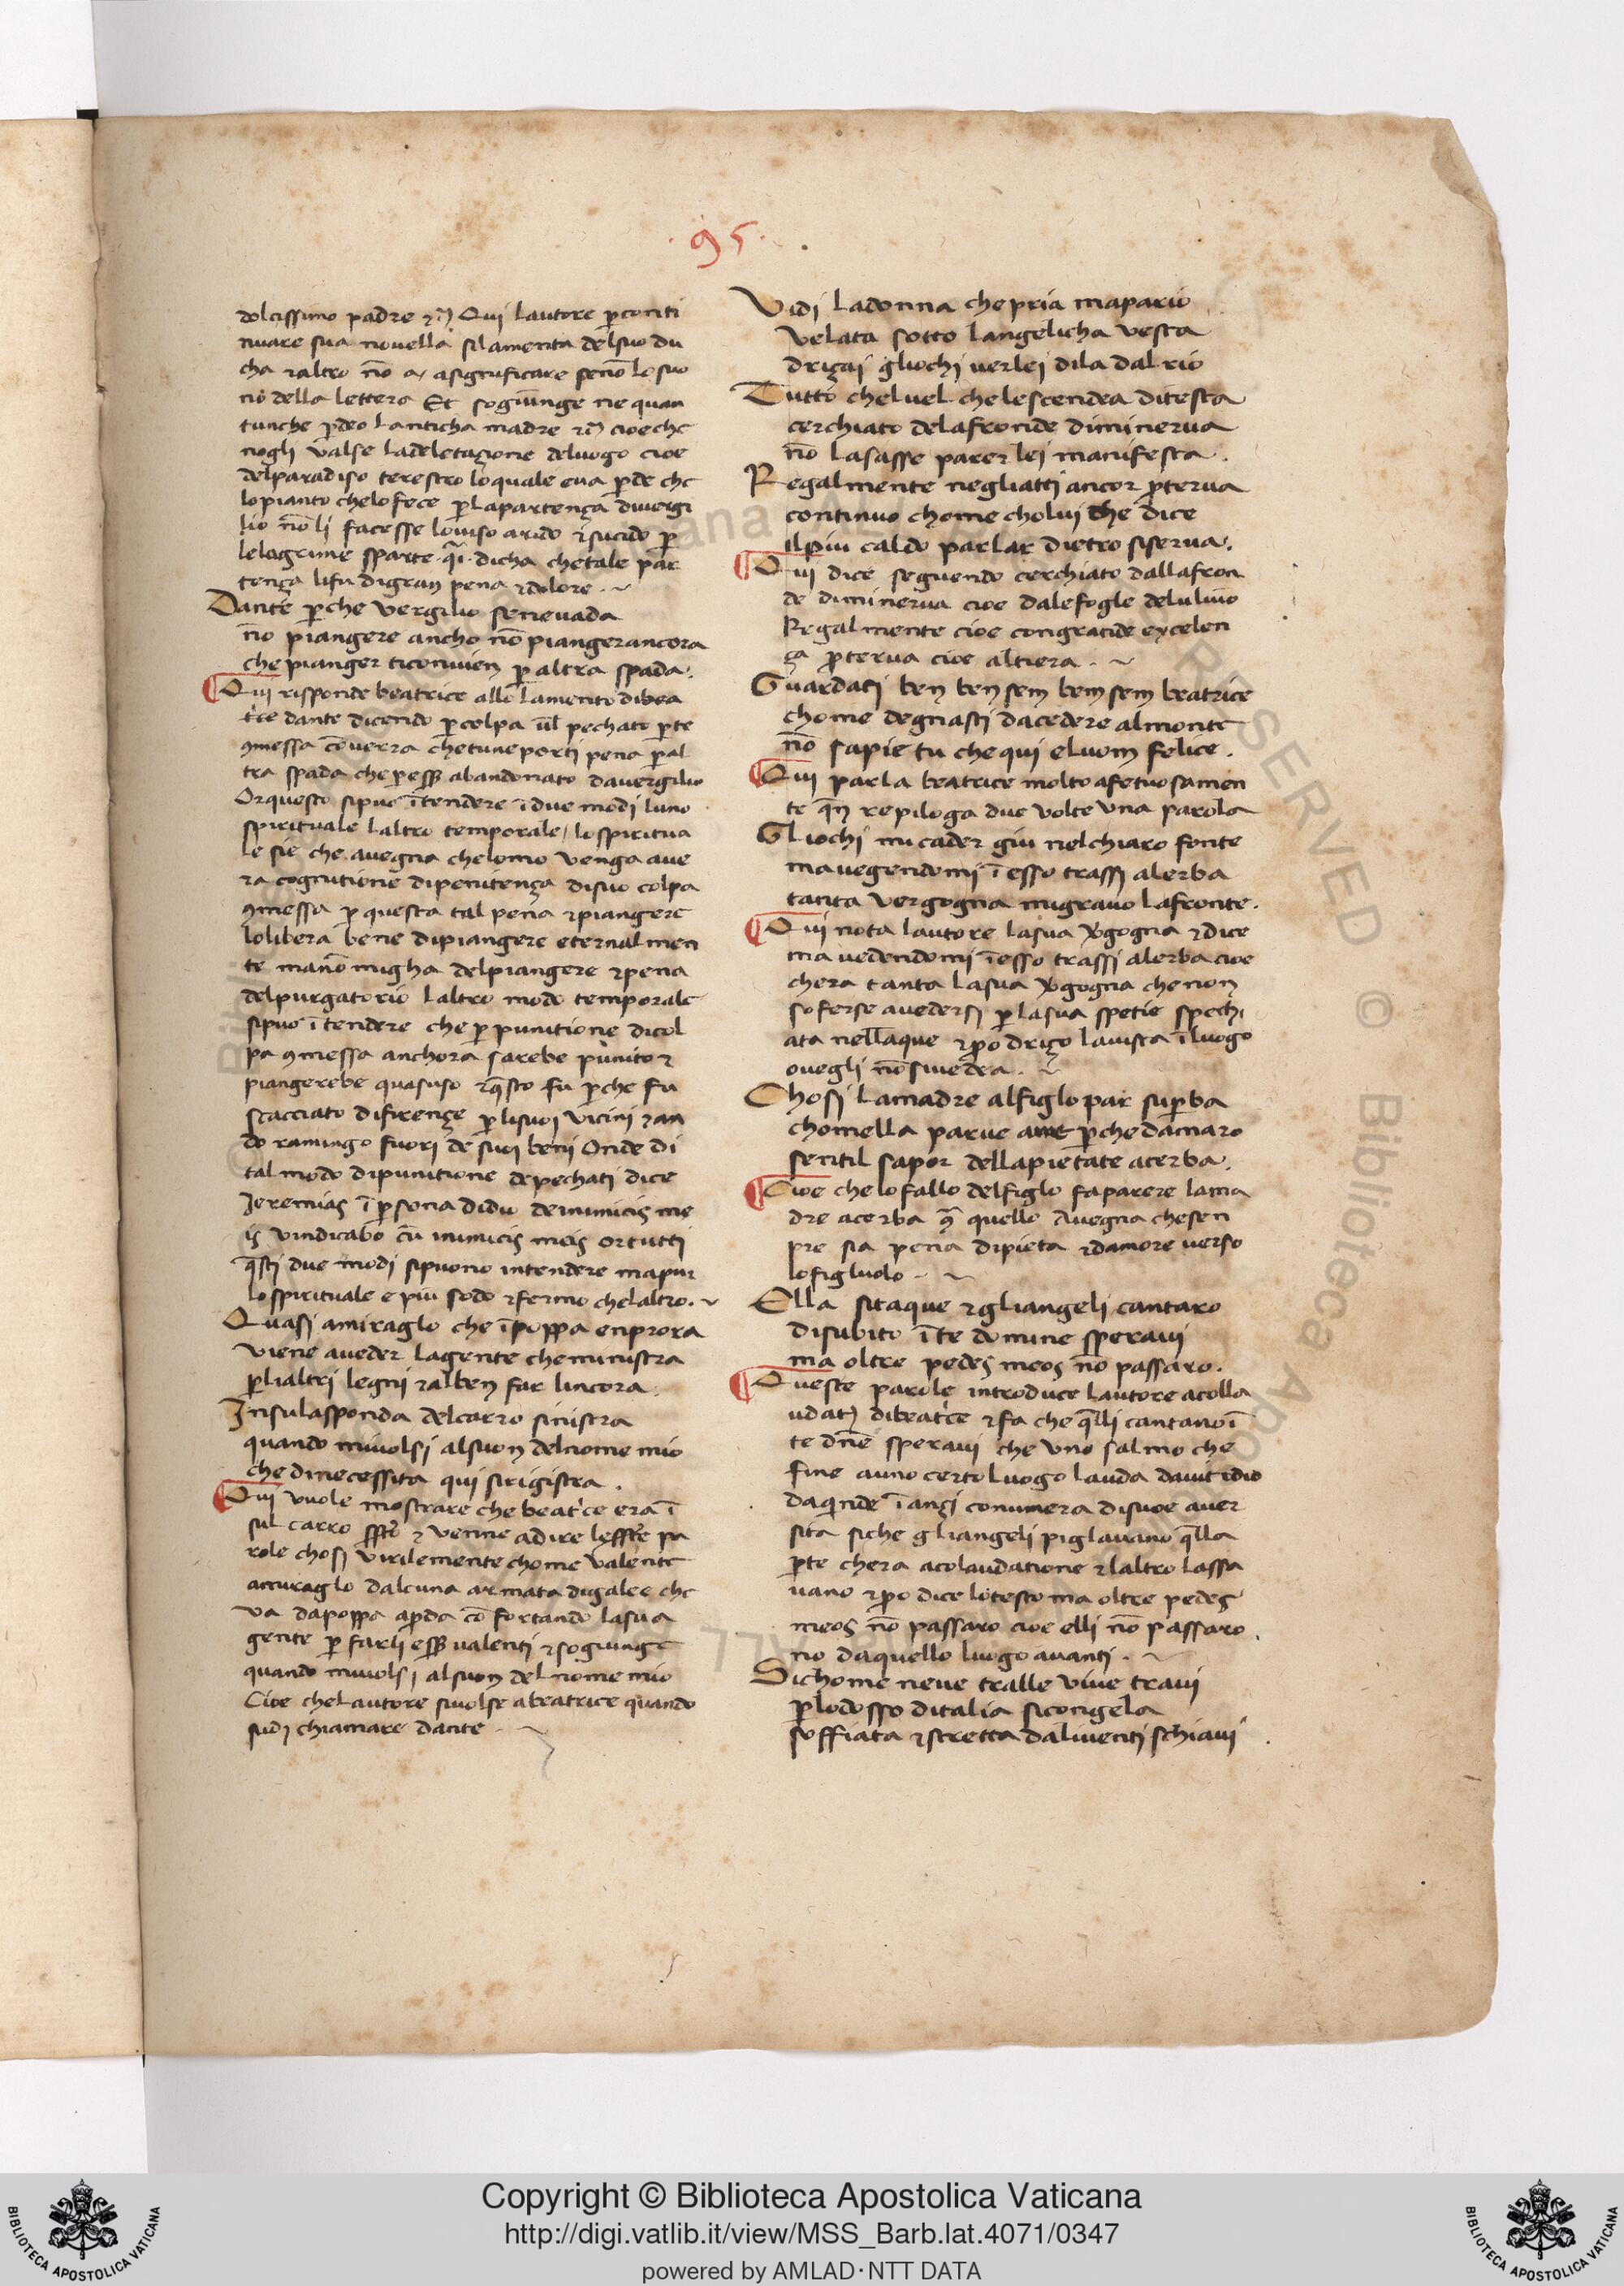 ·95·
dolcissimo padre ⁊c̃ Qui lautore ꝑconti
nuare sua nouella silamenta delsuo du
cha ⁊altro nō a asignificare senō lo suo
nò della lettera Et sogiunge ne quan
tunche ꝑdeo lanticha madre ⁊c̃ cioe che
nogli valse ladeletazione deluogo cioe
delparadiso terestro loquale eua ꝑde che
lo pianto chelo fece ꝑlapartença diuergi
lio nō li facesse louiso arido ⁊sucido ꝑ
lelagrime sparte · q̄i · dicha chetale par
tença lifu digran pena ⁊dolore · ~
Dante ꝑche vergilio seneuada
nō piangere ancho nō piangerancora
che pianger ticonuien ꝑ altra spada.
Qui risponde beatrice allo lamento dibea
tͥce dante dicendo ꝑcolpa ūl pechato ꝑte
ꝯmessa cōuerra chetuneporti pena ꝑal
tra spada che ꝑ esß abandonato dauergilio
Orquesto sipuo ītendere ī due modi luno
spirituale laltro temporale / lo spiritua
le sie che auegna chelomo venga aue
ra cognitione dipenitença disuo colpa
ꝯmessa ꝑ questa tal pena ⁊piangere
lolibera bene dipiangere eternalmen
te manō migha delpiangere ⁊pena
delpurgatorio laltro modo temporale
sipuo ītendere che ꝑ punitione dicol
pa ꝯmessa anchora sarebe punito ⁊
piangerebe quasuso ⁊q̄sto fu ꝑche fu
scacciato difirençe ꝑ lisuoi vicini ⁊an
do ramingo fuori de suoi beni Onde di
tal modo dipunitione depechati dice
Jeremias ī ꝑsona didio deinimicis me
is vindicabo cū inimicis meis or tutti
q̄sti due modi sipuono intendere mapur
lo spirituale e piu sodo ⁊fermo chelaltro. ~
Quasi amiraglo che īpoppa enprora
viene aueder lagente cheministra
ꝑlialtri legni ⁊alben far lincora.
Insulasponda delcarro sinistra
quando miuolsi alsuon delnome mio
che dinecessita qui sirigistra.
Qui vuole mostrare che beatͥce era ī
sul carro ⁊ venne adire
role chosi virilemente chome valente
amiraglo dalcuna armata digalee che
va dapoppa aꝑda cō fortando lasua
gente ꝑ farli esß valenti ⁊sogiunge
quando miuolsi alsuon del nome mio
Cioe chelautore siuolse abeatrice quando
sudi chiamare dante ~
Vidi ladonna chepria maparìo
velata sotto langelicha vesta
driçai gliochi uerlei dila dal rio
Tutto cheluel chelescendea ditesta
cerchiato delafronde diminerua
nō lasasse parer lei manifesta.
Regalmente negliatti ancor ꝓterua
continuo chome cholui che dice
ilpiu caldo parlar dietro siserua.
Qui dice seguendo cerchiato dallafron
de diminerua cioe dalefogle deluliuo
Regalmente cioe congrande excelen
ça ꝓterua cioe altiera · ~
Guardati ben ben sem bem sem beatrice
chome degnasti dacedere almonte
nō sapie tu che qui eluom felice.
Qui parla beatrice molto afetuosamen
te q̄n repiloga due volte vna parola
Gliochi mi cader giu nelchiaro fonte
mauegendomi ī esso trassi alerba
tanta vergogna migrauo lafronte.
Qui nota lautore lasua ṽgogna ⁊dice
ma uedendomi ī esso trassi alerba cioe
chera tanta lasua ṽgogna chenon
soferse auedersi ꝑ lasua spetie spech
ata nellaque ⁊ꝑo driço lauista ī luogo
ouegli nō siuedea. ~
Chosi lamadre alfiglo par suꝑba
chomella parue ame ꝑche damaro
sentil sapor dellapietate acerba.
Cioe chelo fallo delfiglo faparere lama
dre acerba q̄ quello Auegna chesen
pre sia pena dipieta ⁊damore verso
lofigluolo · ~
Ella sitaque ⁊gliangeli cantaro
disubito īte domine speraui
ma oltre pedes meos nō passaro.
Queste parole introduce lautore acolla
udatꝫ dibeatͥce ⁊fa che q̄lli cantano ī
te dn̄e speraui che vno salmo che
fine auno certo luogo lauda dauit idio
daquinde īançi conumera disuoe auer
sita siche gliangeli piglauano q̄lla
ꝑte chera acolaudatione ⁊laltro lassa
uano ⁊ꝑo dice lotesto ma oltre pedes
meos nō passaro cioe elli nō passaro
no daquello luogo auanti. ~
Sichome neue tralle viue traui
ꝑlodosso ditalia sicongela
soffiata ⁊stretta daliuenti schiaui
Copyright © Biblioteca Apostolica Vaticana
http://digi.vatlib.it/view/MSS_Barb.lat.4071/0347
powered by AMLAD·NTT DATA
BIBLIOTECA APOSTOLICA VATICANA
BIBLIOTECA APOSTOLICA VATICANA